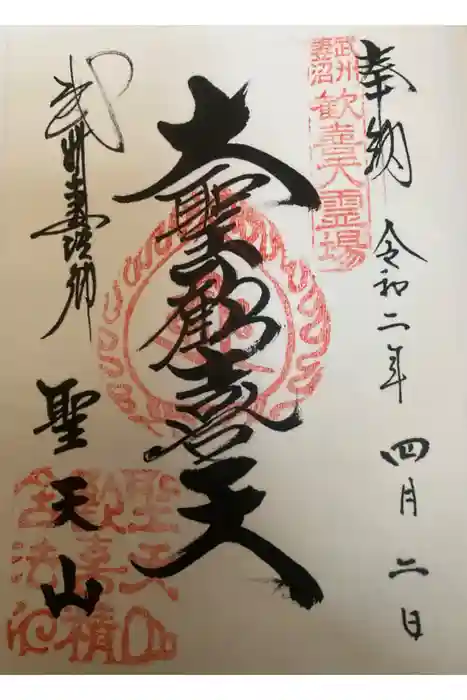 奉納 令和二年 四月二日
武州妻沼
歓喜天霊場
大聖歓喜天
武州妻沼郷
聖天山
聖天山
歓喜積